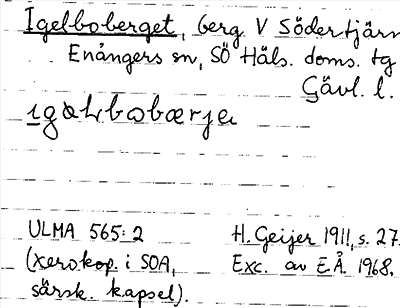 Igelboberget, berg V Södertjärn
Enångers sn, SÖ Häls. doms. tg
Gävl. l.
ULMA 565:2 H. Geijer 1911, s. 27.
(xerokop. i SOA, Exc. av E.Å. 1968.
särsk. kapsel).